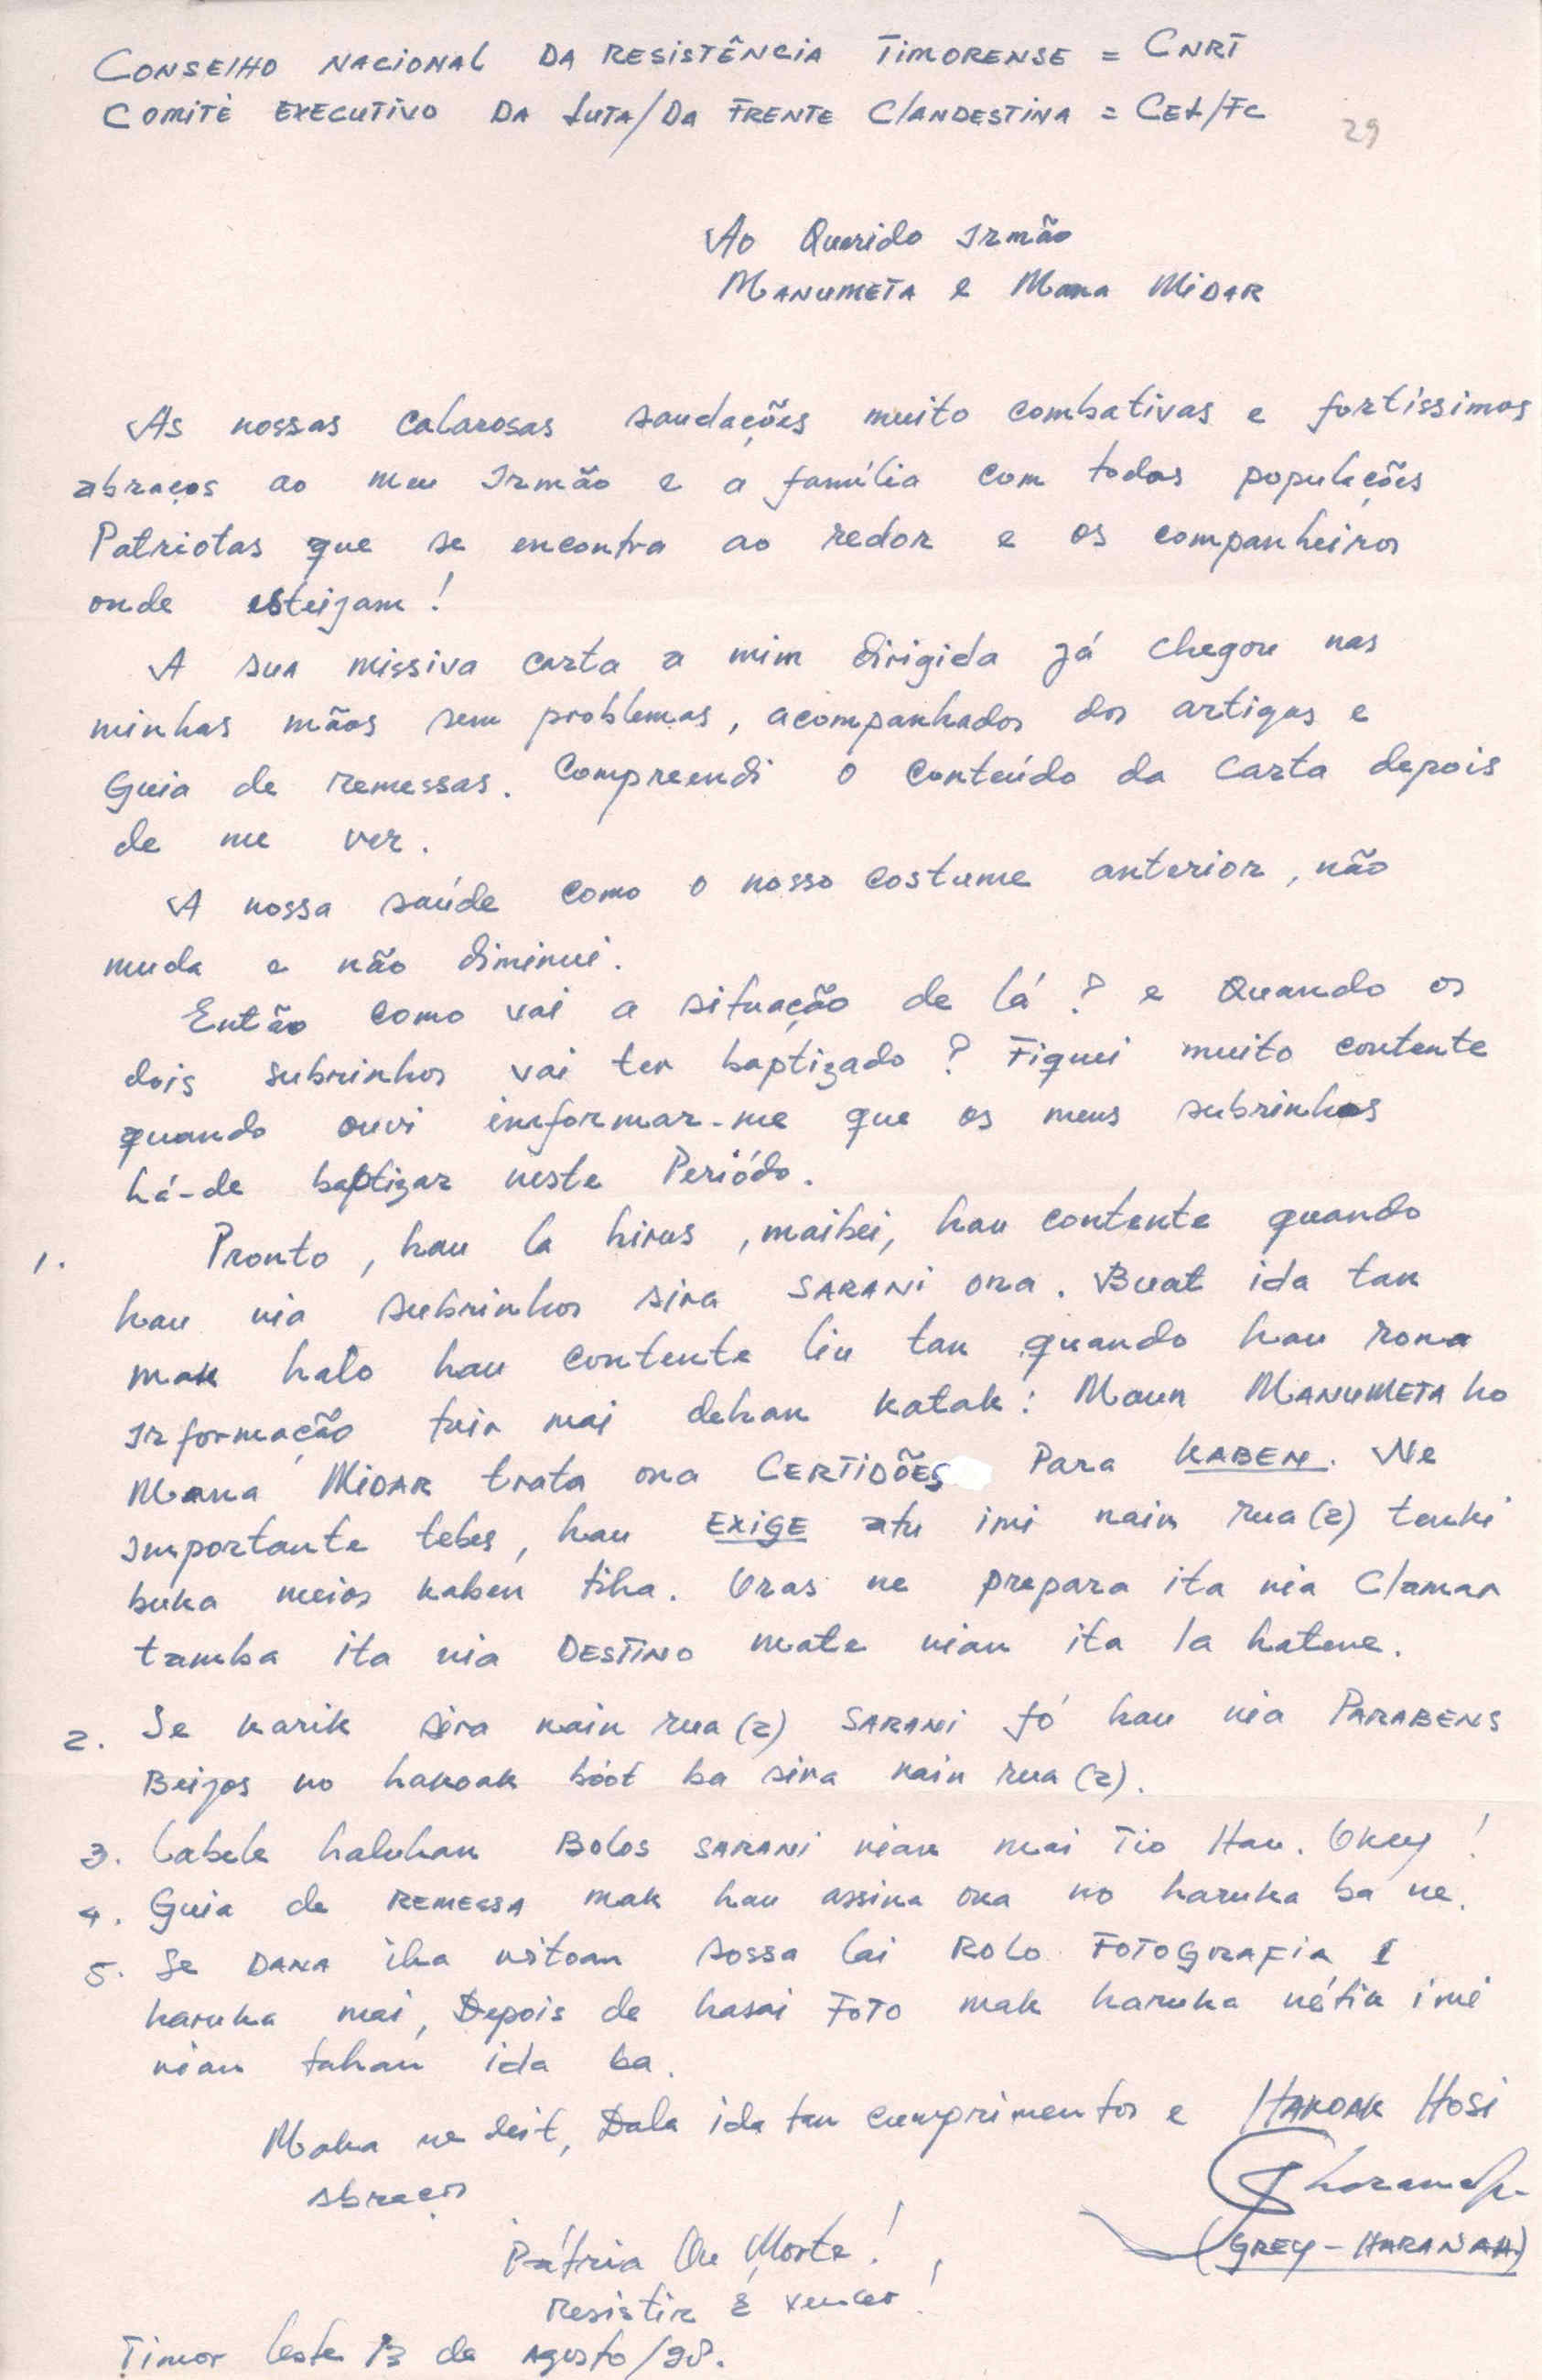 CONSELHO NACIONAL DA RESISTÊNCIA TIMORENSE = CNRT
COMITÈ EXECUTIVO DA LUTA/DA FRENTE CLANDESTINA = CEL/FC
29
Ao Querido Irmão
MANUMETA e Mana MIDAR
As nossas calarosas saudações muito combativas e fortíssimos
abraços ao meu Irmão e a família com todas populações
Patriotas que se encontra ao redor e os companheiros
onde esteijam!
A sua missiva carta a mim dirigida já chegou nas
minhas mãos sem problemas, acompanhados dos artigos e
Guia de remessas. Compreendi o conteúdo da carta depois
de me ver.
A nossa saúde como o nosso costume anterior, não
muda e não diminui.
Então como vai a situação de lá? e Quando os
dois subrinhos vai ter baptizado? Fiquei muito contente
quando ouvi informar-me que os meus subrinhos
há-de baptizar neste Periódo.
1. Pronto, hau la hirus, maibei, hau contente quando
hau nia subrinhos sira SARANI ona. Buat ida tan
mak halo hau contente liu tan quando hau rona
Informação tuir mai dehan katak: Maun MANUMETA ho
Mana MIDAR trata ona CERTIDÕES Para KABEN. Ne
Importante tebes, hau EXIGE atu imi nain rua (2) tenki
buka meios kaben tiha. Oras ne prepara ita nia Clamar
tamba ita nia DESTINO mate nian ita la hatene.
2. Se karik sira nain rua (2) SARANI fó hau nia PARABENS
Beijos no hakoak bóot ba sira nain rua (2).
3. Labele haluhan BOLOS SARANI nian mai Tio Hau. Okey!
4. Guia de REMESSA mak hau assina ona no haruka ba ne.
5. Se DANA iha uitoan sossa lai ROLO FOTOGRAFIA 1
haruka mai, Depois de hasai FOTO mak haruka nétik imi
nian tahan ida ba.
Maka ne deit, Dala ida tan cumprimentos e HAKOAK HOSI
abraços
(GREY - HARANAH)
Pátria Ou Morte!
Resistir é vencer!
Timor Leste 13 de Agosto/98.